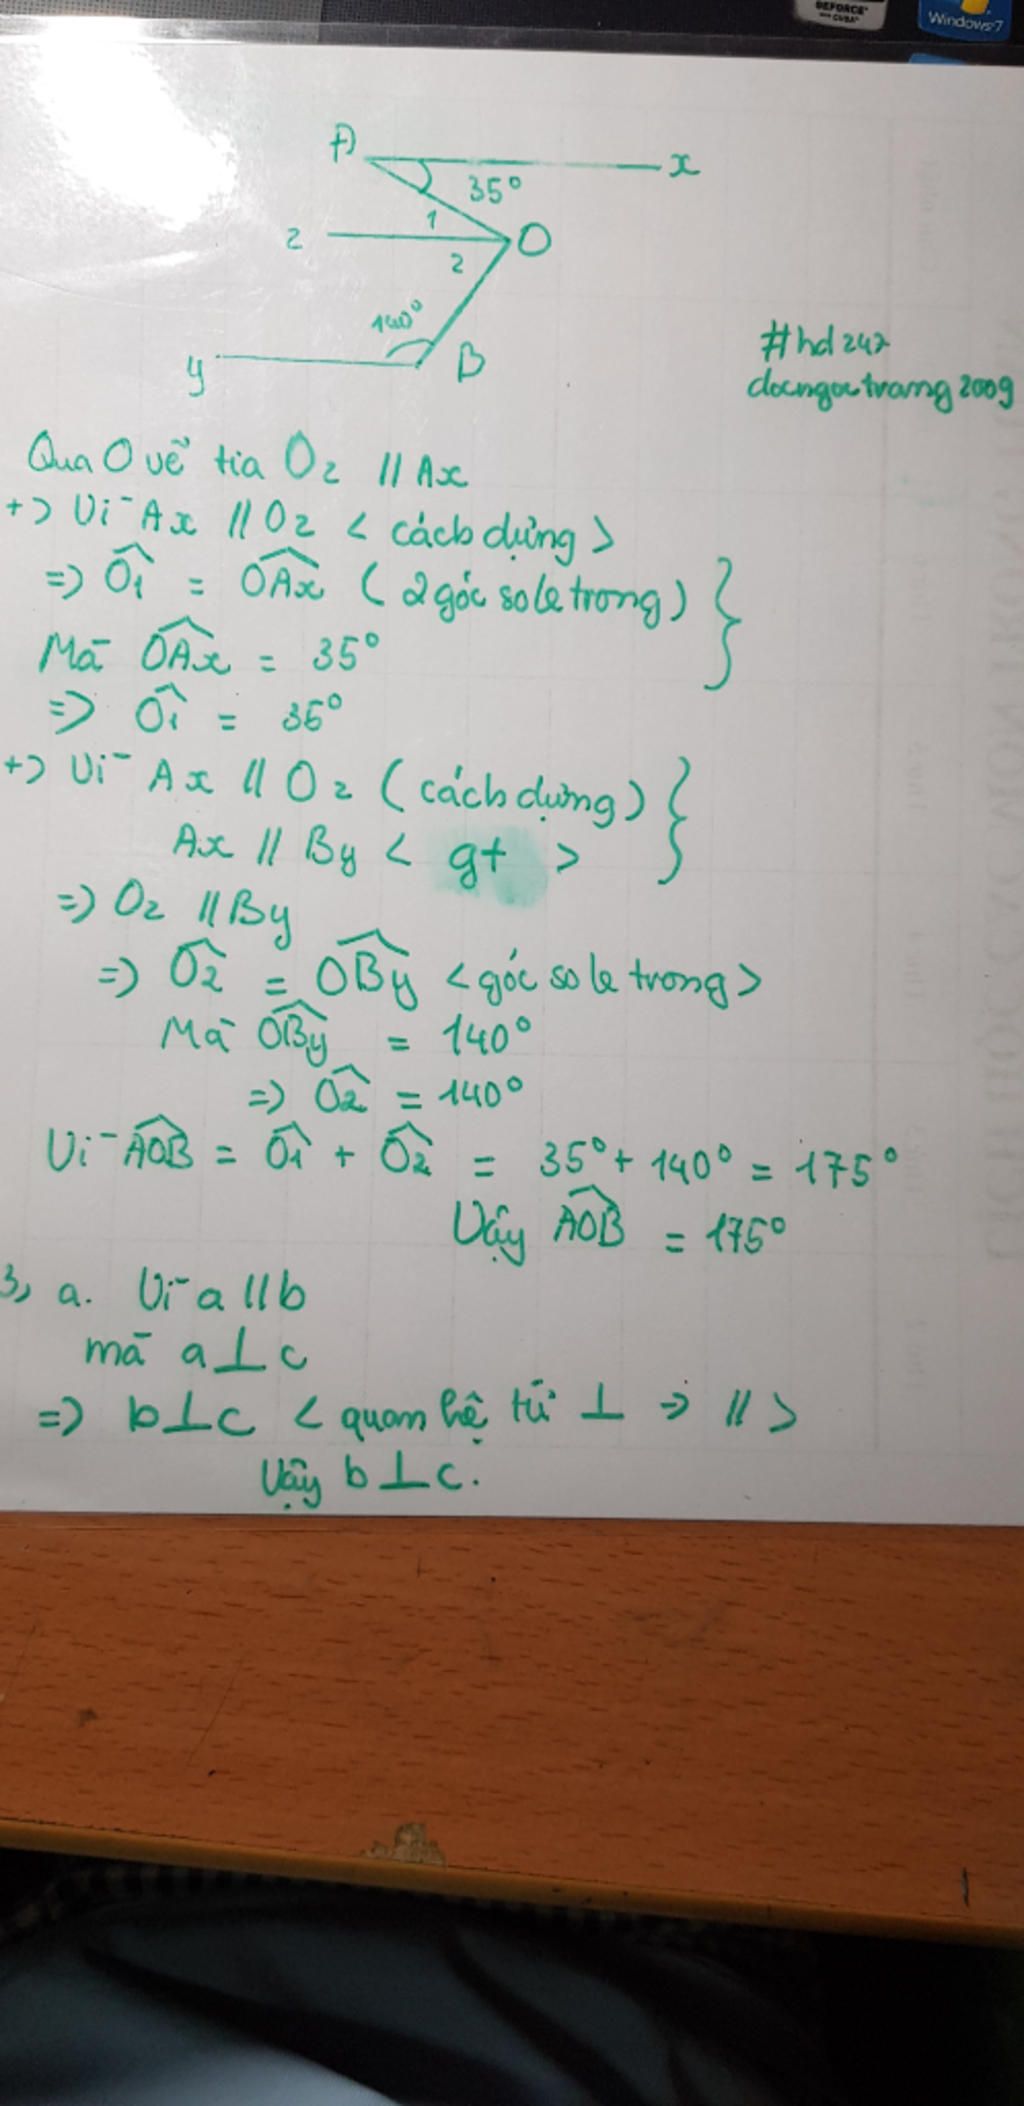 GEFORCE
CUDA
Windows 7
A
x
35°
1
z
O
2
140°
y
B
#hd247
docngoctrang2009
Qua O vẽ tia Oz // Ax
+) Vì Ax // Oz < cách dựng >
=> Ô1 = OAx ( 2 góc so le trong ) }
Mà OAx = 35°
=> Ô1 = 35°
+) Vì Ax // Oz ( cách dựng ) }
Ax // By < gt >
=> Oz // By
=> Ô2 = OBy < góc so le trong >
Mà OBy = 140°
=> Ô2 = 140°
Vì AOB = Ô1 + Ô2 = 35° + 140° = 175°
Vậy AOB = 175°
3, a. Vì a // b
mà a ⊥ c
=> b ⊥ c < quan hệ từ ⊥ -> // >
Vậy b ⊥ c.